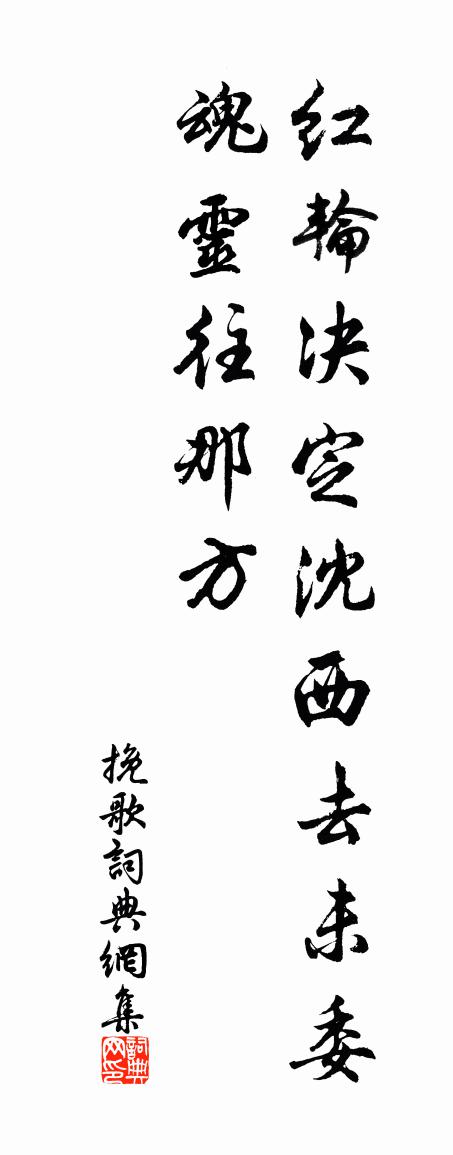 红輪决定沈西去未委
魂靈往那方
挽歌詞典網集
詞典网印